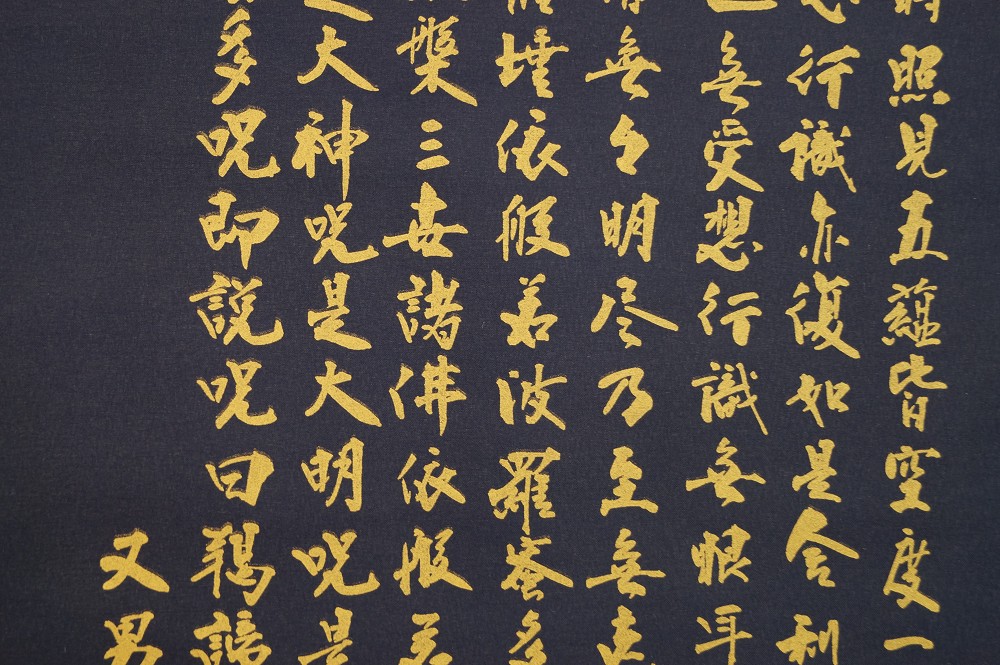 照見五蘊皆空度一
行識亦復如是舎利
無受想行識無眼耳
無々明尽乃至無老
埵依般若波羅蜜多
槃三世諸佛依般若
大神呪是大明呪是
多呪即説呪曰羯諦
又男